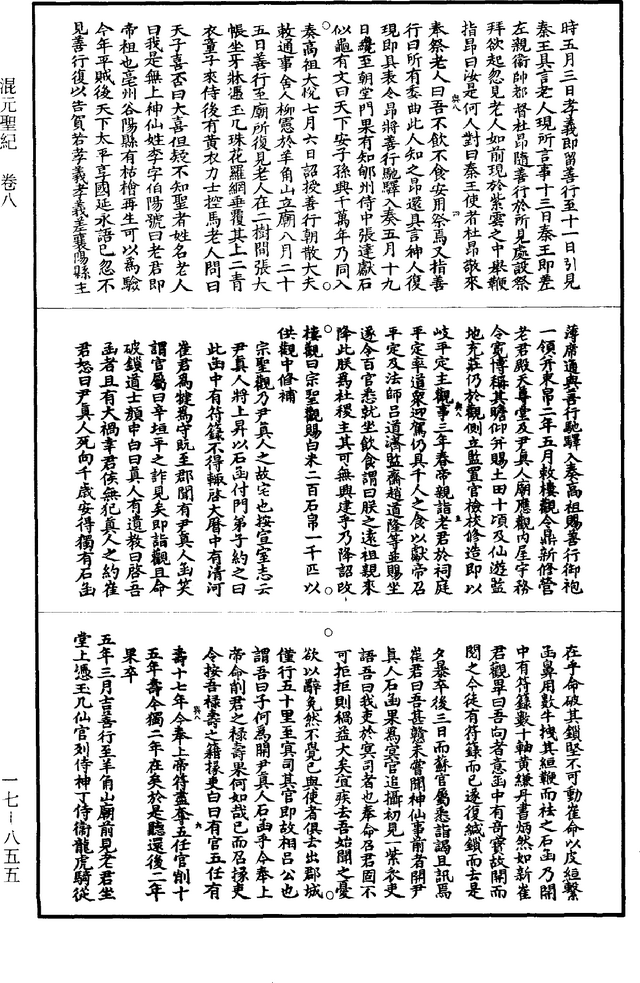 混元聖紀　卷八
時五月三日孝義即留善行至十一日引見
秦王具言老人現所言事十三日秦王即差
左親衛帥都督杜昂隨善行於所見處設祭
拜欲起忽見老人如前現於紫雲之中舉鞭
指昂曰汝是何人對曰秦王使者杜昂敬來
奉祭老人曰吾不飲不食安用祭焉又指善
行曰所有委曲此人知之昂還具言神人復
現即具表令昂將善行馳驛入奏五月十九
日纔至朝堂門果有知郇州侍中張達獻石
似龜有文曰天下安子孫興千萬年乃同入
奏高祖大悅七月六日詔授善行朝散大夫
敕通事舍人柳憲於羊角山立廟八月二十
五日善行至廟所復見老人在二樹間張大
帳坐牙牀憑玉几珠花羅網垂覆其上二青
衣童子夾侍後有黃衣力士控馬老人問曰
天子喜否曰大喜但疑不知聖者姓名老人
曰我是無上神仙姓李字伯陽號曰老君即
帝祖也亳州谷陽縣有枯檜再生可以為驗
今年平賊後天下太平享國延永語已忽不
見善行復以告賀若孝義孝義差襄陽縣主
薄席通與善行馳驛入奏高祖賜善行御袍
一領并束帛二年五月敕樓觀令鼎新修營
老君殿天尊堂及尹真人廟應觀內屋宇務
令寬博稱其瞻仰并賜土田十頃及仙遊監
地充莊仍於觀側立監置官檢校修造即以
岐平定主觀事三年春帝親詣老君於祠庭
平定率道眾迎駕仍具千人之食以獻帝召
平定及法師呂道濟監齋趙道隆等並賜坐
遂令百官悉就坐飲食謂曰朕之遠祖親來
降此朕為社稷主其可無興建乎乃降詔改
樓觀曰宗聖觀賜白米二百石帛一千匹以
供觀中修補
宗聖觀乃尹真人之故宅也按宣室志云
尹真人將上昇以石函付門弟子約之曰
此函中有符籙不得輒啓大曆中有清河
崔君為犍為守既至郡聞有尹真人函笑
謂官屬曰辛垣平之詐見矣即詣觀且命
破鎖道士顏中白曰真人有遺教曰啓吾
函者且有大禍幸君侯無犯真人之約崔
君怒曰尹真人死向千歲安得獨有石函
在乎命破其鎖堅不可動崔命以皮絙繫
函鼻用數牛拽其絙鞭而柱之石函乃開
中有符籙數十軸黃縑丹書炳然如新崔
君觀畢曰吾向者意函中有奇寶故開而
閱之今徒有符籙而已遂復緘鎖而去是
夕暴卒後三日而蘇官屬悉詣謁且訊焉
崔君曰吾甚贛未嘗聞神仙事前者開尹
真人石函果為冥官追攝初見一紫衣吏
語吾曰我吏於冥司者也奉命召君固不
可拒拒則禍益大矣宜疾去吾始聞之憂
欲以辭免然不覺已與使者俱去出郡城
僅行五十里至冥司其官即故相呂公也
謂吾曰子何為開尹真人石函乎今奉上
帝命削君之祿壽果何如哉已而召掾吏
令按吾祿壽之籍掾吏白曰有官五任有
壽十七年今奉上帝符盡奪五任官削十
五年壽今獨二年在矣於是聽還後二年
果卒
五年三月吉善行至羊角山廟前見老君坐
堂上憑玉几仙官列侍神丁侍衛龍虎騎從
一七－八五五